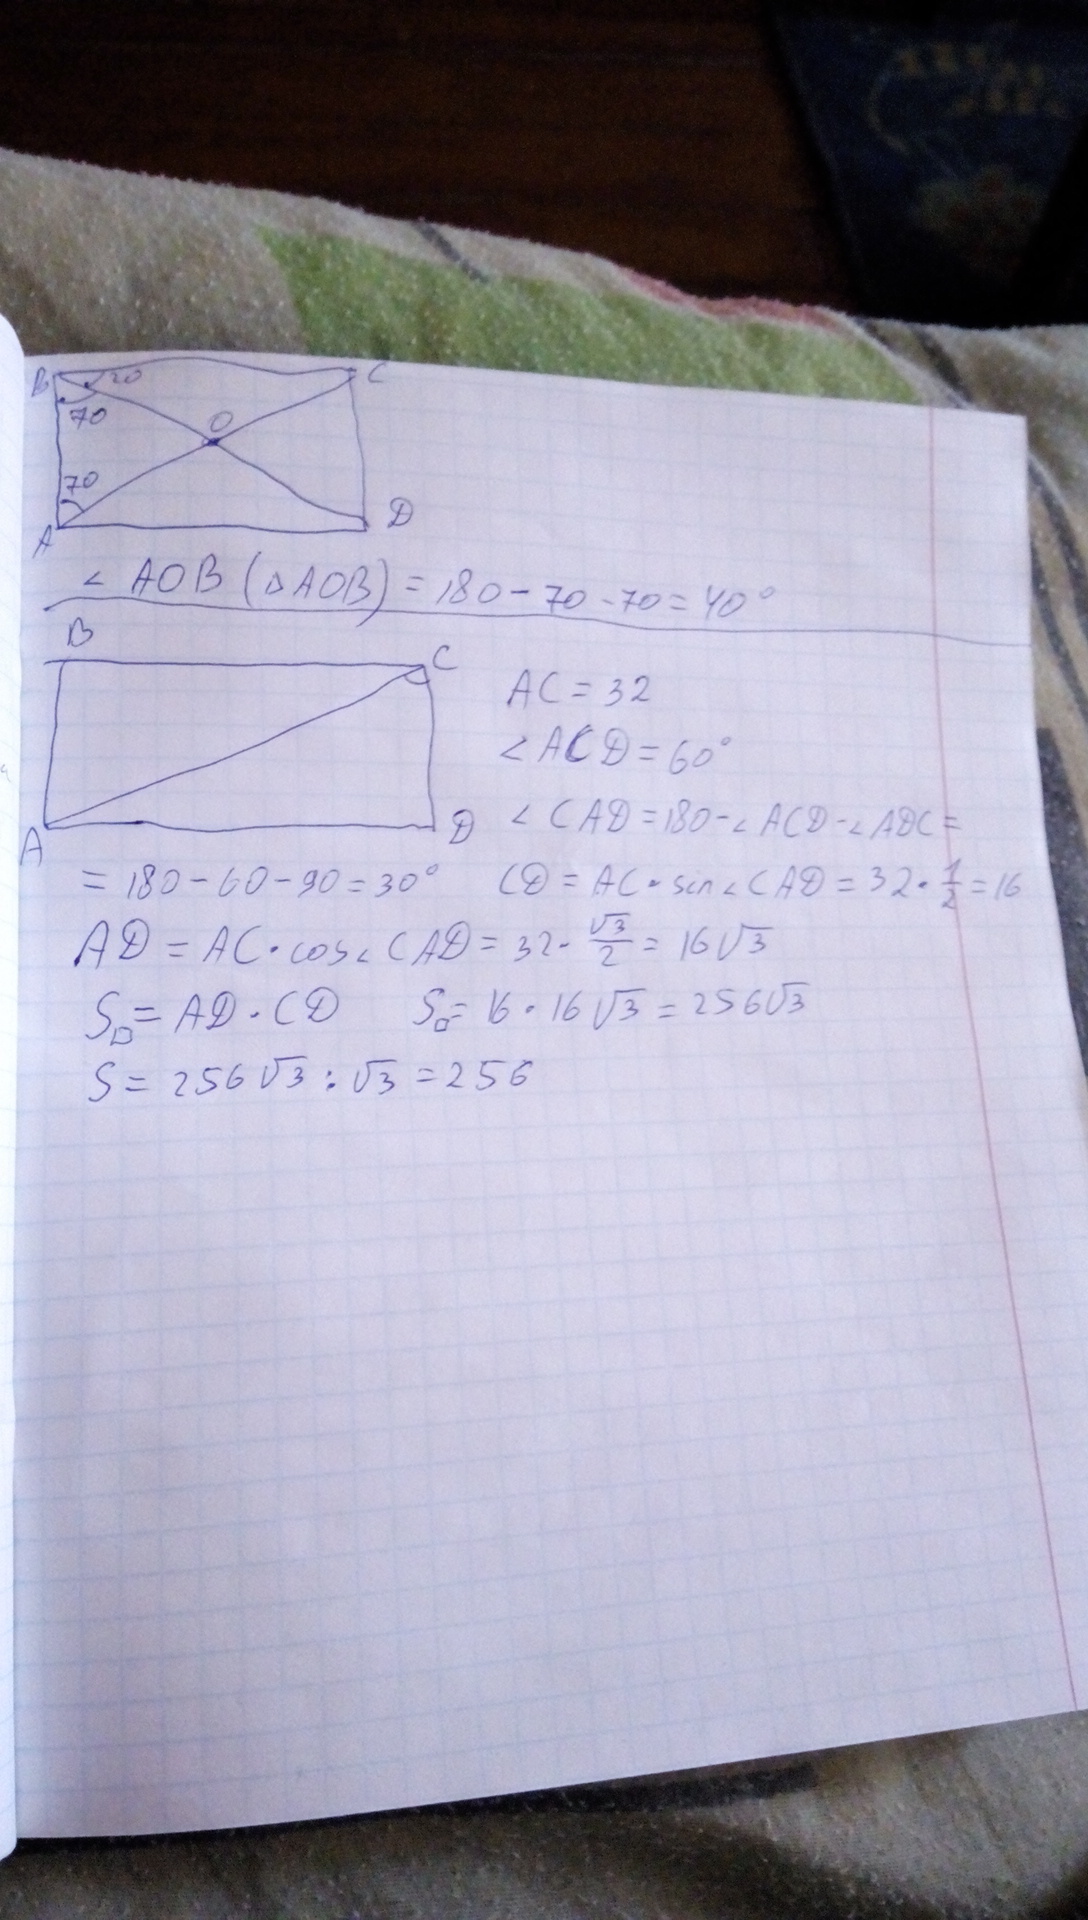 B 20 C
70 O
70
A D
∠ AOB (△AOB) = 180 - 70 - 70 = 40°
B C
AC = 32
∠ ACD = 60°
A D ∠ CAD = 180 - ∠ ACD - ∠ ADC =
= 180 - 60 - 90 = 30° CD = AC · sin ∠ CAD = 32 · 1/2 = 16
AD = AC · cos ∠ CAD = 32 · √3/2 = 16√3
S□ = AD · CD S□ = 16 · 16√3 = 256√3
S = 256√3 : √3 = 256